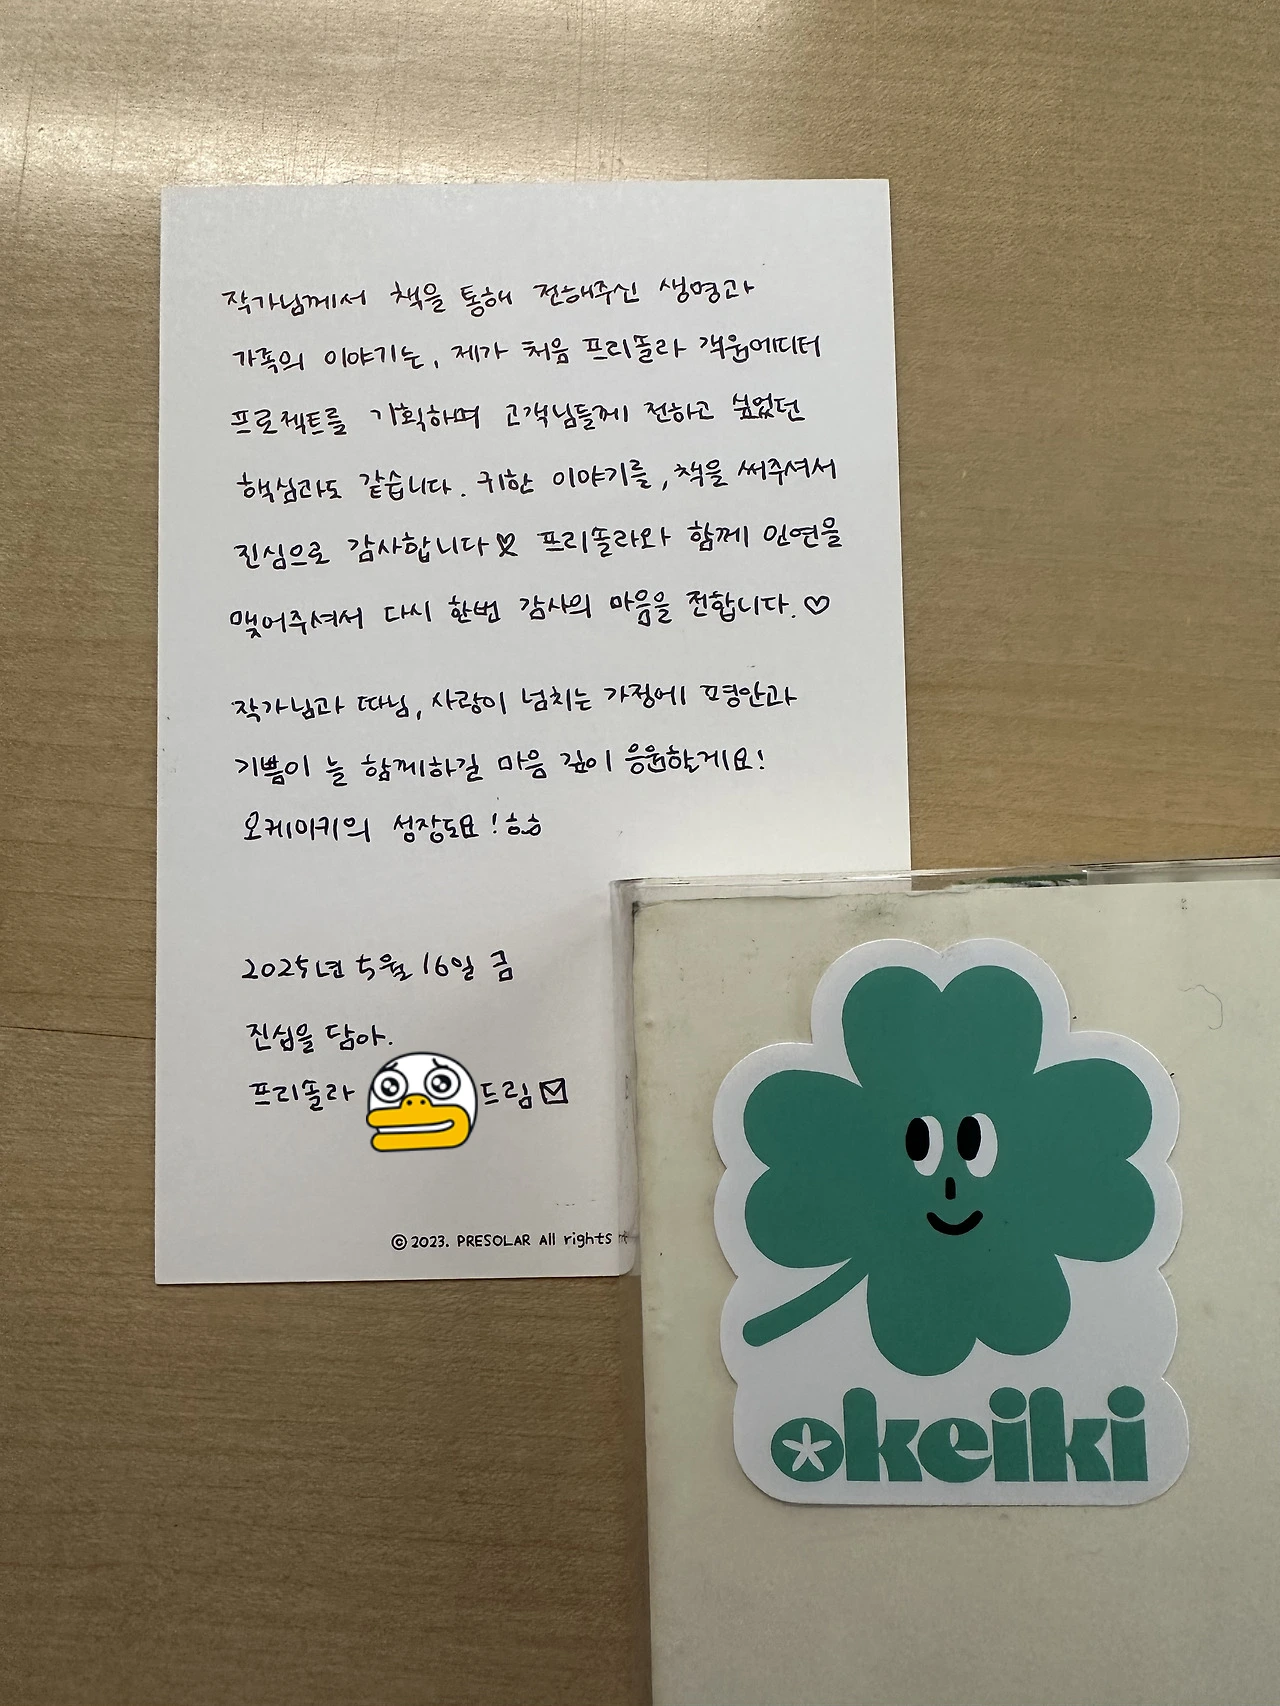 작가님께서 책을 통해 전해주신 생명과
가족의 이야기는, 제가 처음 프리쏠라 객원에디터
프로젝트를 기획하며 고객님들께 전하고 싶었던
핵심과도 같습니다. 귀한 이야기를, 책을 써주셔서
진심으로 감사합니다♡ 프리쏠라와 함께 인연을
맺어주셔서 다시 한번 감사의 마음을 전합니다.♡
작가님과 따님, 사랑이 넘치는 가정에 평안과
기쁨이 늘 함께하길 마음 깊이 응원할게요!
오케이키의 성장도요!ㅎㅎ
2025년 5월 16일 금
진심을 담아.
프리쏠라 드림
© 2023. PRESOLAR All rights
okeiki